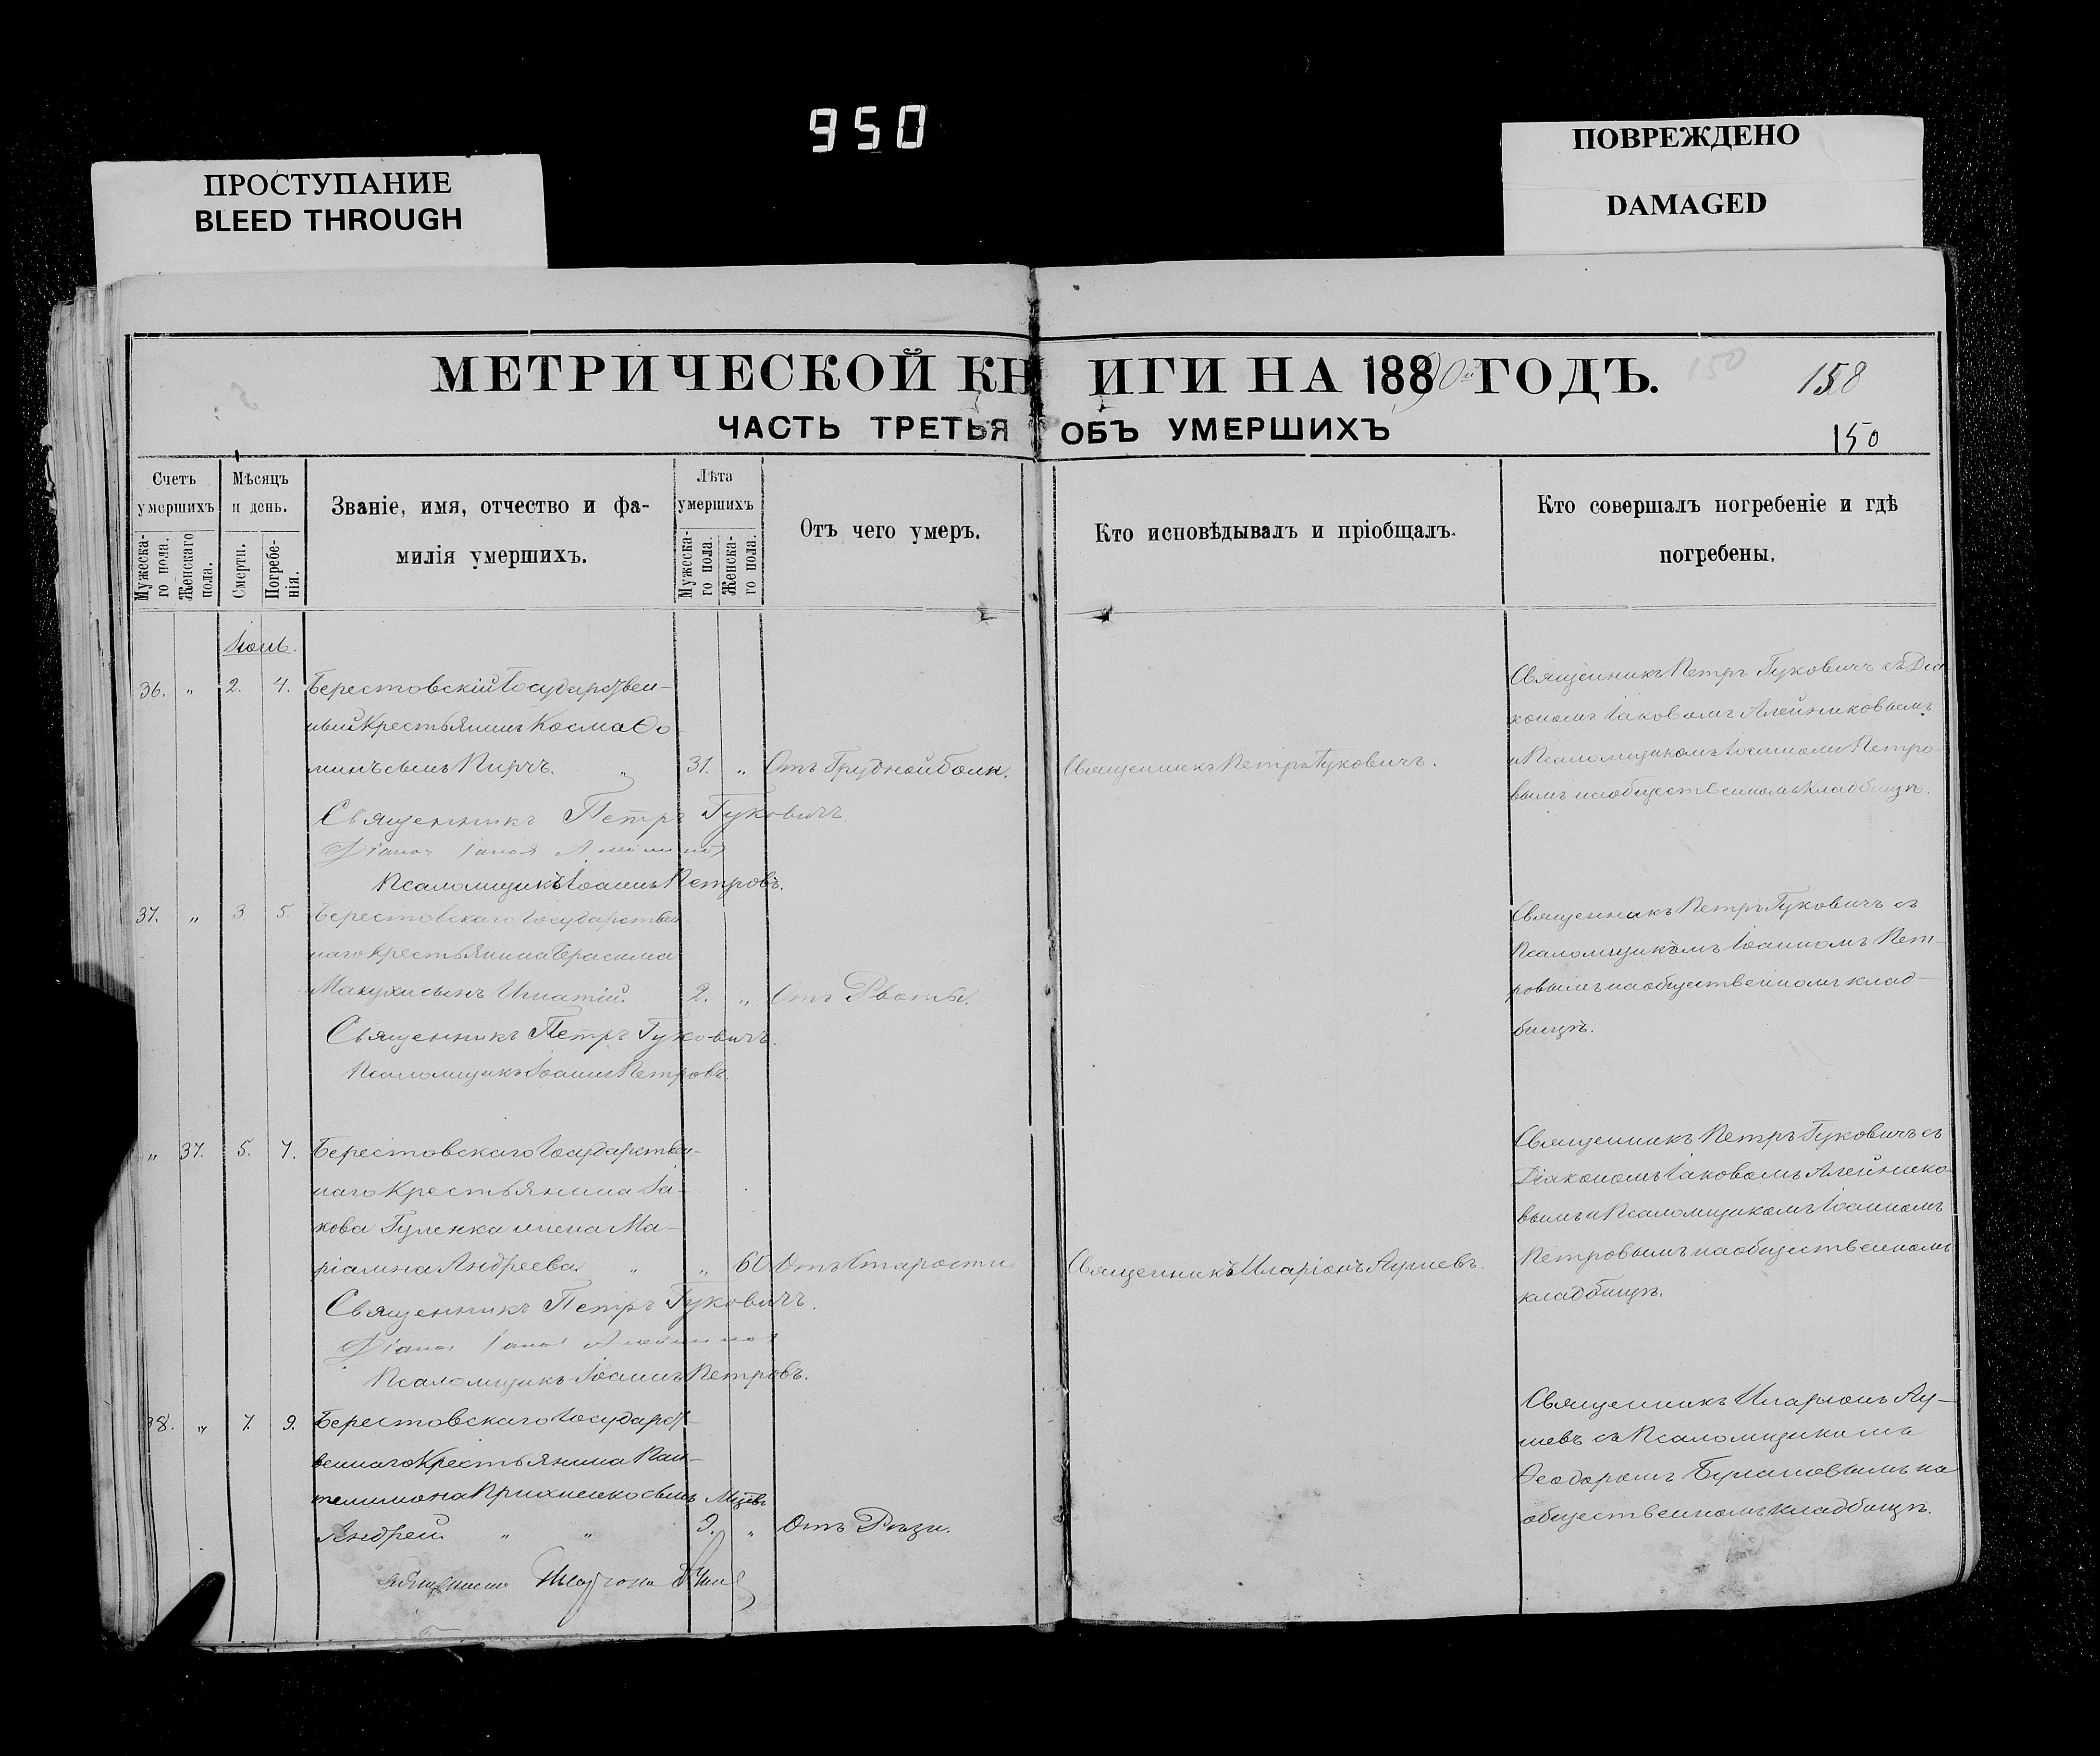 950
ПРОСТУПАНИЕ
BLEED THROUGH
ПОВРЕЖДЕНО
DAMAGED
МЕТРИЧЕСКОЙ КНИГИ НА 18890й ГОДЪ.
150
158
ЧАСТЬ ТРЕТЬЯ ОБЪ УМЕРШИХЪ
150
Счетъ умершихъ
Мужеска-го пола.
Женскаго пола.
Мѣсяцъ и день.
Смерти.
Погребе-нія.
Званіе, имя, отчество и фа-
милія умершихъ.
Лѣта умершихъ
Мужеска-го пола.
Женска-го пола.
Отъ чего умеръ.
Кто исповѣдывалъ и пріобщалъ.
Кто совершалъ погребеніе и гдѣ
погребены.
36. „ 2. 4. Берестовскій Государствен-
ный Крестьянинъ Косма Ѳо
минъ сынъ „ 31. „ Отъ Грудной боли.
Священникъ Петръ Гуковичъ.
Священникъ Петръ Гуковичъ съ Діа
кономъ Іаковомъ Алейниковымъ
и Псаломщикомъ Іоанномъ Петро-
вымъ на общественномъ кладбищѣ.
Священникъ Петръ Гуковичъ
Псаломщикъ Іоаннъ Петровъ.
37. „ 3 5. Берестовскаго Государствен-
наго Крестьянина Герасима
сынъ Игнатій. 2. „ Отъ Рвоты.
Священникъ Петръ Гуковичъ съ
Псаломщикомъ Іоанномъ Пет-
ровымъ на общественномъ клад-
бищѣ.
Священникъ Петръ Гуковичъ.
Псаломщикъ Іоаннъ Петровъ
„ 37. 5. 7. Берестовскаго Государствен-
наго Крестьянина Іа-
кова Гуленка жена Ма-
ріамна Андреева „ „ 60 Отъ Старости
Священникъ Иларіонъ
Священникъ Петръ Гуковичъ съ
Діакономъ Іаковомъ Алейнико-
вымъ и Псаломщикомъ Іоанномъ
Петровымъ на общественномъ
кладбищѣ.
Священникъ Петръ Гуковичъ.
Псаломщикъ Іоаннъ Петровъ.
38. „ 7. 9. Берестовскаго Государст-
веннаго Крестьянина Пан-
телимона сынъ Мцвъ
Андрей „ „ 9. „ Отъ Рѣзи.
Священникъ Иларіонъ
съ Псаломщикомъ
Ѳеодоромъ на
общественномъ кладбищѣ.